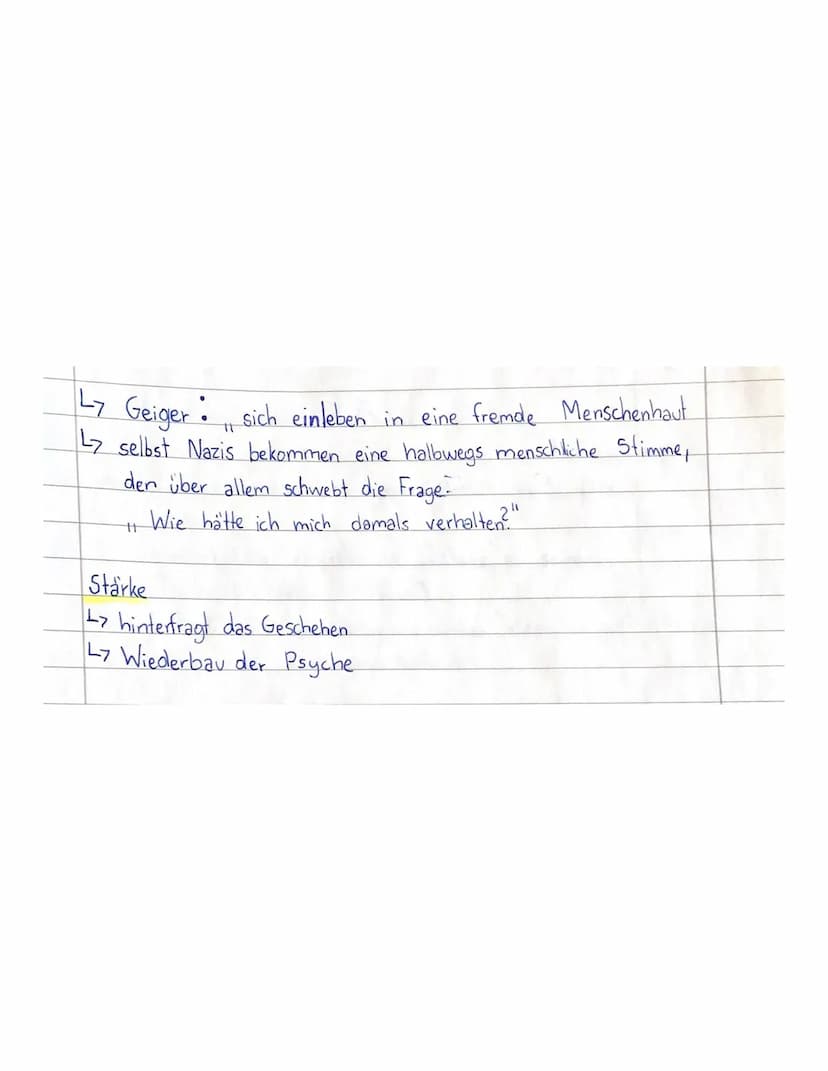 ↳ Geiger: „sich einleben in eine fremde Menschenhaut
↳ selbst Nazis bekommen eine halbwegs menschliche Stimme,
den über allem schwebt die Frage:
„Wie hätte ich mich damals verhalten?"
Stärke
↳ hinterfragt das Geschehen
↳ Wiederbau der Psyche